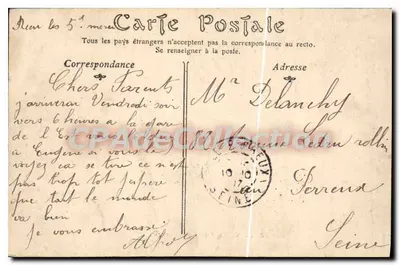 Carte Postale
Tous les pays étrangers n'acceptent pas la correspondance au recto.
Se renseigner à la poste.
Correspondance
Adresse
Chers Parents
j'arriverai Vendredi soir
vers 6 heures a la gare
de l'Est
à Eugène si vous le
voyez ca se tire ce n'est
pas trop tot j'espère
que tout le monde
va bien
je vous embrasse
Mr Delanchy
Avenue Ledru rollin
Perreux
Seine
CPADeCollection